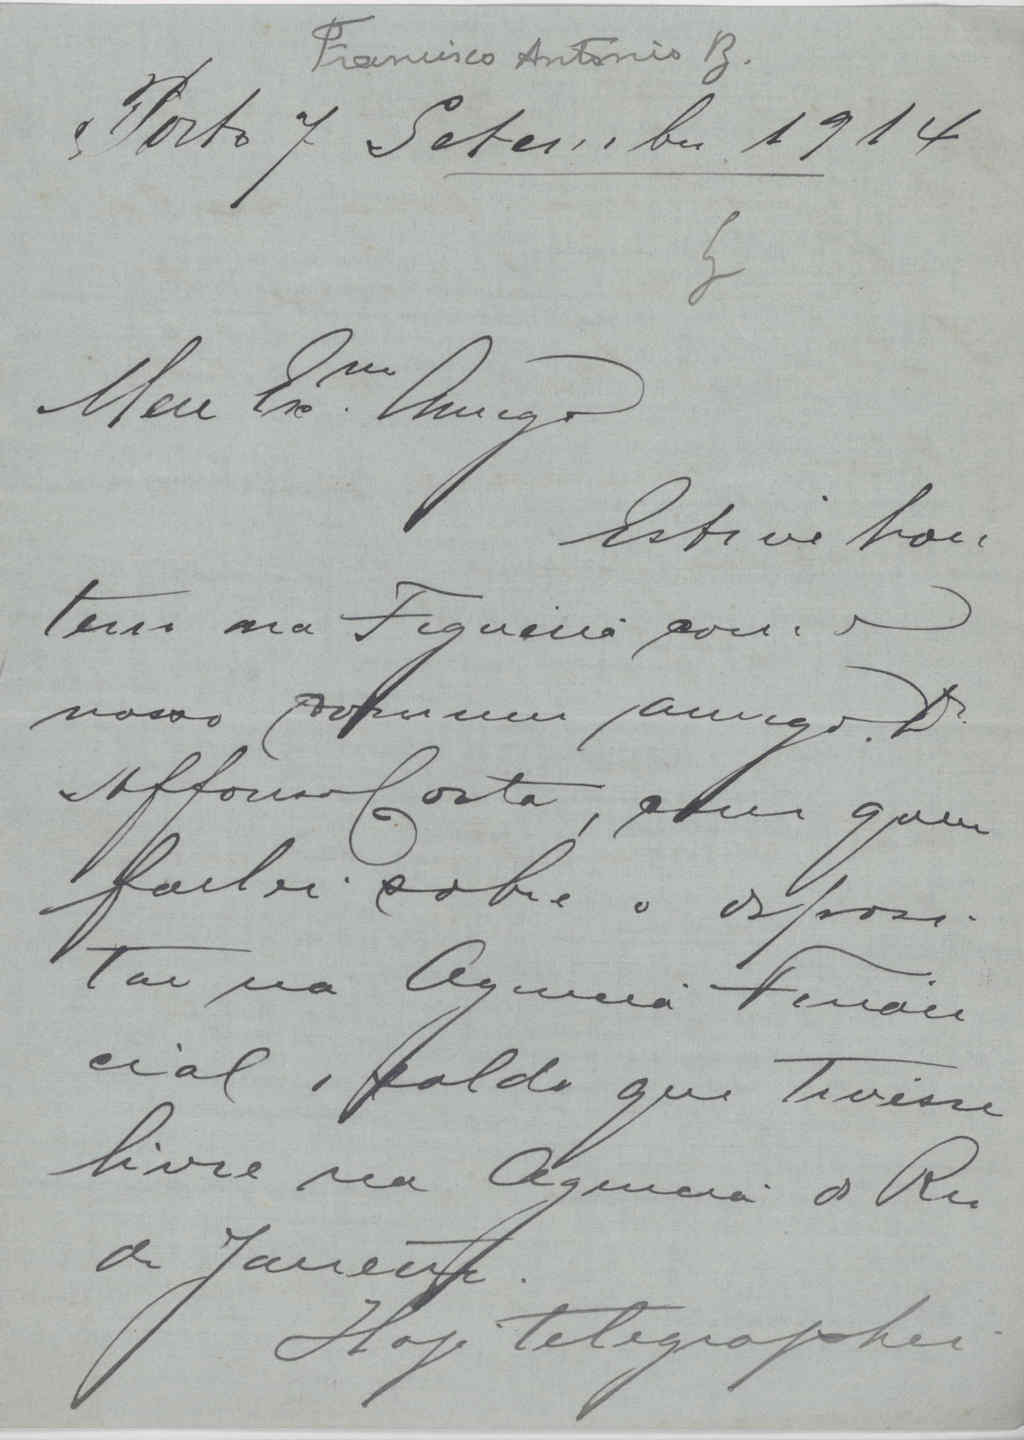 Francisco António B.
Porto 7 Setembro 1914
Meu Ex.mo Amigo
Estive hon
tem na Figueira com o
nosso commum amigo Dr.
Affonso Costa, com quem
fallei sobre o deposi-
tar na Agencia Finan
cial o saldo que tivesse
livre na Agencia do Rio
de Janeiro.
Hoje telegraphei